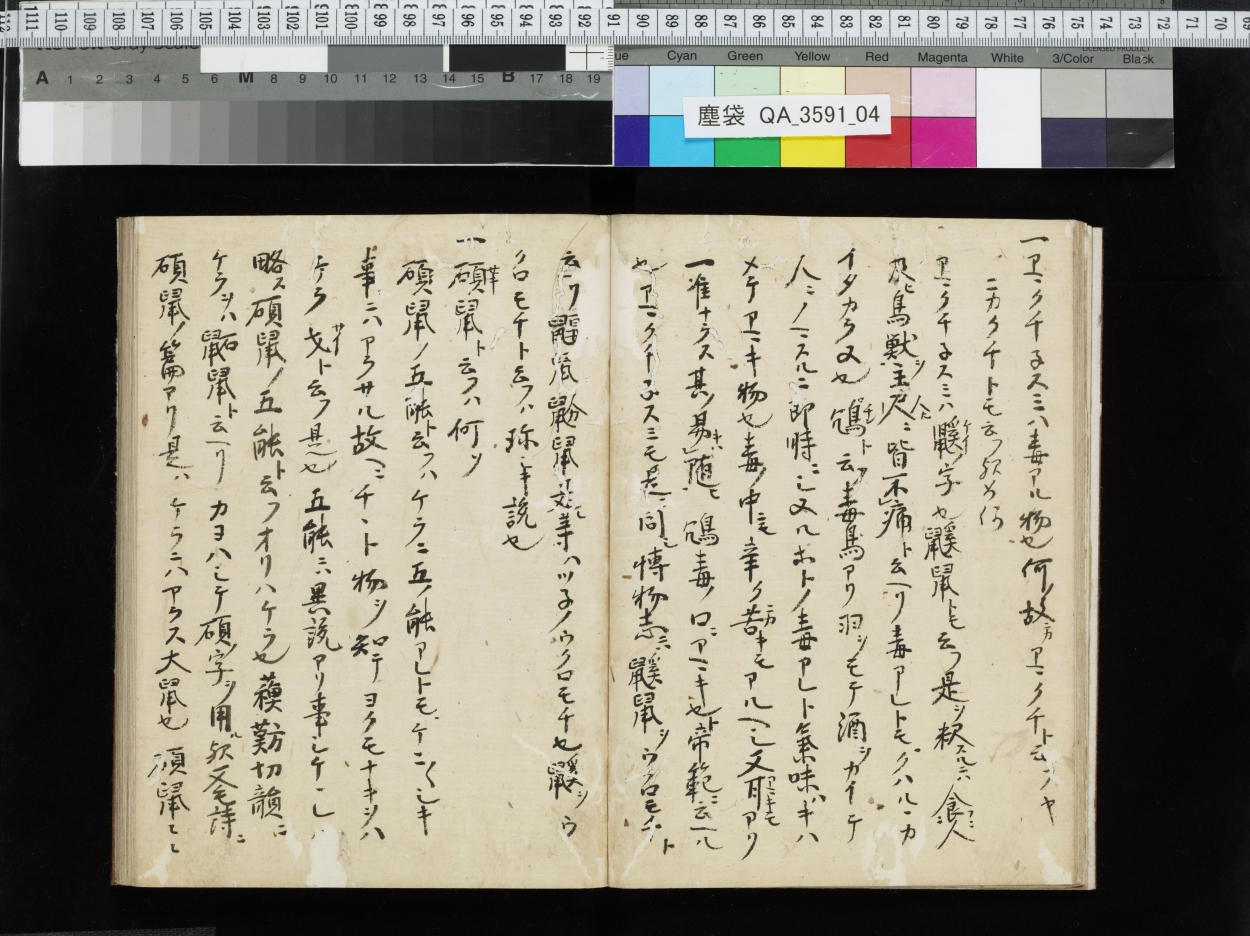 塵袋 QA_3591_04
Cyan Green Yellow Red Magenta White 3/Color Black
A 1 2 3 4 5 6 M 8 9 10 11 12 13 14 15 B 17 18 19
一アマクチネスミハ毒アル物也何ノ故ニカアマクチト云フヤ
ニカクチトモ云フ歟如何
アマクチネスミハ鼷ノ字也鼷鼠トモ云フ是ヲ釈スルニハ食人
及ヒ鳥獣ヲ至尽ニ皆不痛ト云ヘリ毒アレトモクハルヽカ
イタカラヌ也鴆ト云フ毒鳥アリ羽ヲモテ酒ヲカイテ
人ニノマスルニ即時ニシヌルホトノ毒アレト気味ハキハ
メテアマキ物也毒ノ中ニモ辛ク苦キモアルヘシ又甜アリ
一准ナラス其ノ易キニハ随モ鴆毒ノ口ニアマキ也ト帝範ニ云ヘル
也アマクチネスミモ是ニ同シ博物志ニハ鼷鼠ヲウクロモチト
云ヘリ鼴鼠鼢鼠等ハツネノウクロモチ也鼷ヲウ
クロモチト云フハ珍キ説也
一碩鼠ト云フハ何ソ
碩鼠ノ五能ト云フハケラニ五ノ能アレトモケニケニシキ
事ニハアラサル故ヘニチト物ヲ知テヨクモナキヲハ
ケラサイト云フ是也五能ニ異説アリ事シケシ
略ス碩鼠ノ五能ト云フオリハケラ也蒋魴切韻ニ
ケラヲハ鼫鼠ト云ヘリカヨハシテ碩ノ字ヲ用ル歟又毛詩ニ
碩鼠ノ篇アリ是ハケラニハアラス大鼠也碩鼠ヽヽ